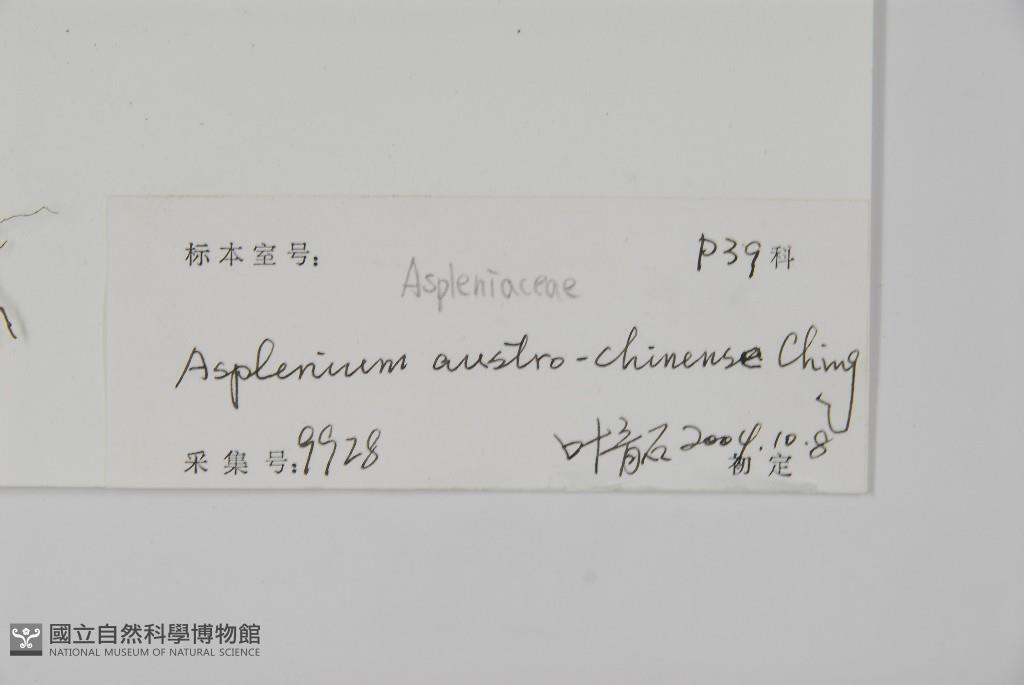 标本室号:
P39科
Aspleniaceae
Asplenium austro-chinense Ching
采集号:9928
叶育石 2004.10.8
初定
國立自然科學博物館
NATIONAL MUSEUM OF NATURAL SCIENCE